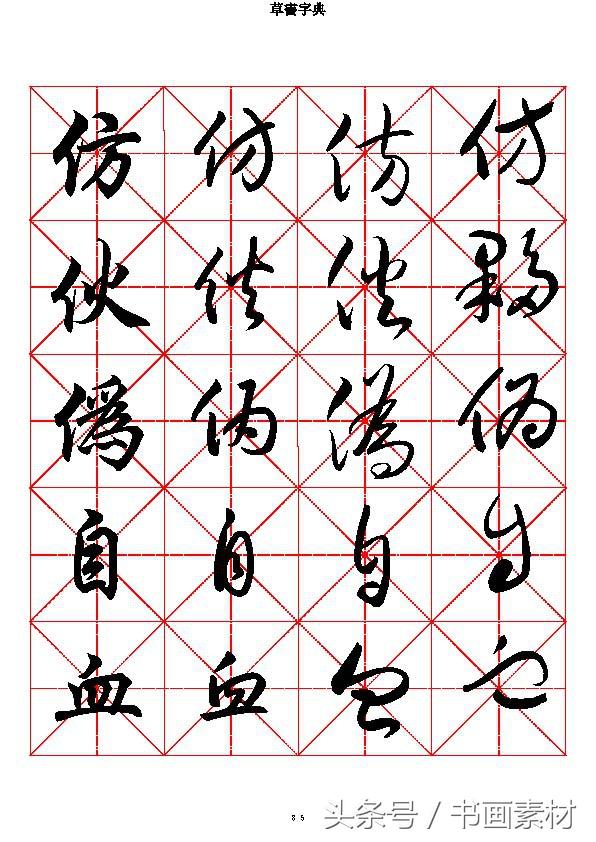 草書字典
仿仿仿仿
伙伙伙夥
偽偽偽偽
自自自自
血血血血
85
头条号 / 书画素材